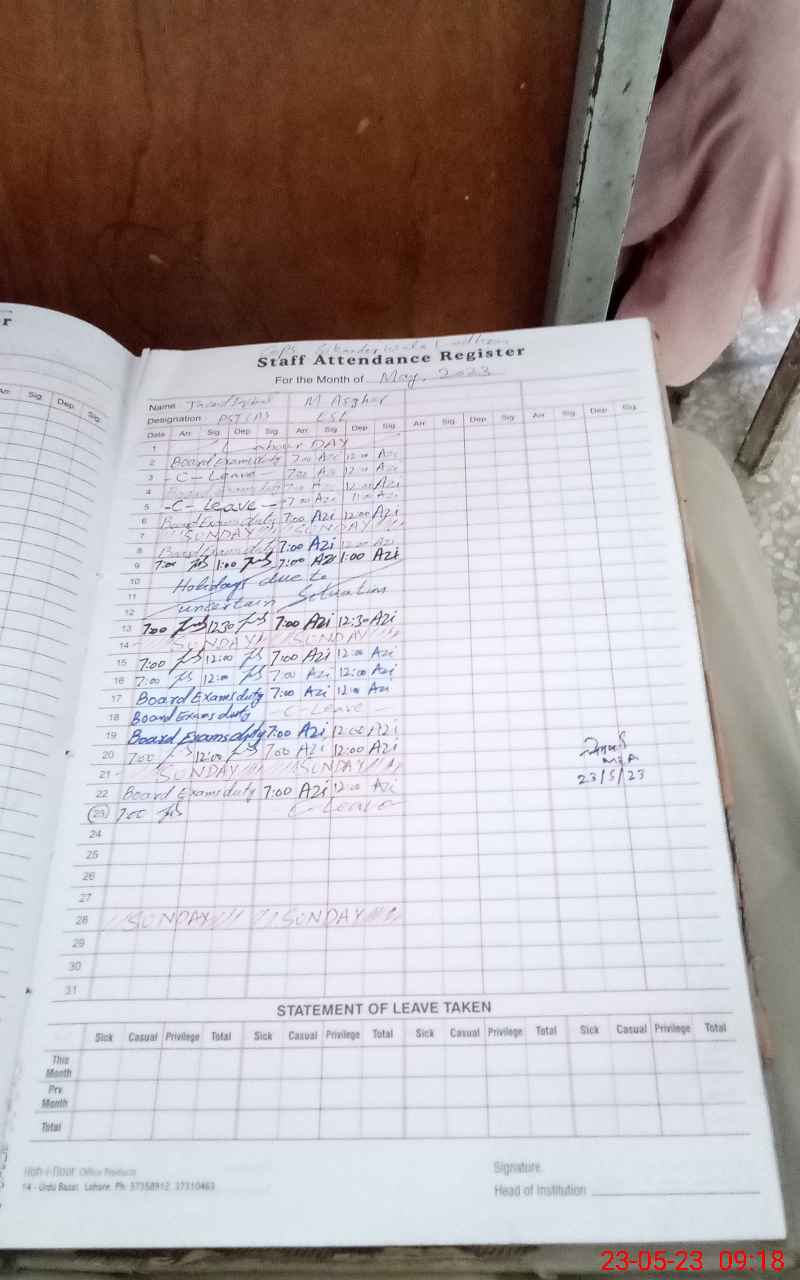 r
Arr. Sig. Dep. Sig.
Staff Attendance Register
For the Month of May, 2023
Name M Asghar
Designation PST (A)
Date Arr. Sig. Dep Sig. Arr. Sig Dep Sig. Arr. Sig. Dep Sig. Arr. Sig. Dep Sig.
1 DAY
2 Board Exams duty 7:00 Azi 12:00 Azi
3 -C- Leave - 7:00 Azi 12:00 Azi
4 Board Exams duty 7:00 Azi 12:00 Azi
5 -C- Leave - 7:00 Azi 11:00 Azi
6 Board Exams duty 7:00 Azi 12:00 Azi
7 SUNDAY SUNDAY
8 Board Exams duty 7:00 Azi 12:00 Azi
9 7:00 1:00 7:00 Azi 1:00 Azi
10 Holidays due to
11
12 uncertain Situation
13 7:00 12:30 7:00 Azi 12:30 Azi
14 SUNDAY SUNDAY
15 7:00 12:00 7:00 Azi 12:00 Azi
16 7:00 12:00 7:00 Azi 12:00 Azi
17 Board Exams duty 7:00 Azi 12:00 Azi
18 Board Exams duty - C - Leave -
19 Board Exams duty 7:00 Azi 12:00 Azi
20 7:00 12:00 7:00 Azi 12:00 Azi
21 SUNDAY SUNDAY
22 Board Exams duty 7:00 Azi 12:00 Azi
23 7:00 C-Leave
23/5/23
24
25
26
27
28 SUNDAY SUNDAY
29
30
31
STATEMENT OF LEAVE TAKEN
Sick Casual Privilege Total Sick Casual Privilege Total Sick Casual Privilege Total Sick Casual Privilege Total
This Month
Prv. Month
Total
Office Products
14 - Urdu Bazar, Lahore. Ph: 37358912 37310463
Signature
Head of Institution
23-05-23 09:18